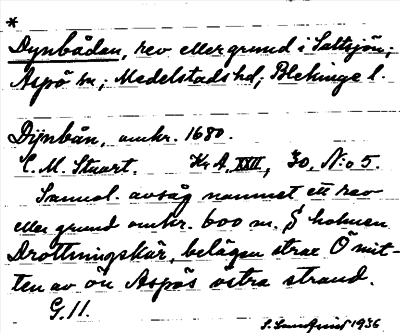 *
Dynbådan, rev eller grund i Saltsjön;
Aspö sn; Medelstads hd; Blekinge l.
Dÿnbån, omkr. 1680.
C. M. Stuart. Kr A, XXIII, 30, N:o 5.
Sannol. avsåg namnet ett rev
eller grund omkr. 600 m. S holmen
Drottningskär, belägen strax Ö mit-
ten av ön Aspös östra strand.
G. 11.
1936